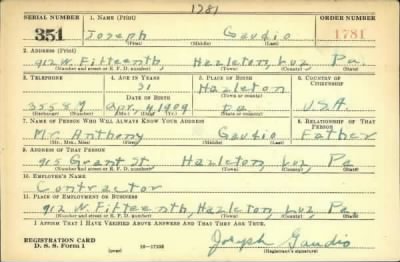 1781
SERIAL NUMBER 1. NAME (Print) ORDER NUMBER
351 Joseph Gaudio 1781
(First) (Middle) (Last)
2. ADDRESS (Print)
912 W. Fifteenth, Hazleton, Luz Pa.
(Number and street or R. F. D. number) (Town) (County) (State)
3. TELEPHONE 4. AGE IN YEARS 5. PLACE OF BIRTH 6. COUNTRY OF CITIZENSHIP
31 Hazleton
DATE OF BIRTH (Town or county)
Apr. 4 1909 Pa U.S.A.
(Exchange) (Number) (Mo.) (Day) (Yr.) (State or country)
7. NAME OF PERSON WHO WILL ALWAYS KNOW YOUR ADDRESS 8. RELATIONSHIP OF THAT PERSON
Mr. Anthony Gaudio Father
(Mr., Mrs., Miss) (First) (Middle) (Last)
9. ADDRESS OF THAT PERSON
915 Grant St Hazleton, Luz, Pa
(Number and street or R. F. D. number) (Town) (County) (State)
10. EMPLOYER'S NAME
Contractor
11. PLACE OF EMPLOYMENT OR BUSINESS
912 W. Fifteenth, Hazleton, Luz, Pa
(Number and street or R. F. D. number) (Town) (County) (State)
I AFFIRM THAT I HAVE VERIFIED ABOVE ANSWERS AND THAT THEY ARE TRUE.
REGISTRATION CARD
D. S. S. Form 1 (over) Joseph Gaudio
(Registrant's signature)